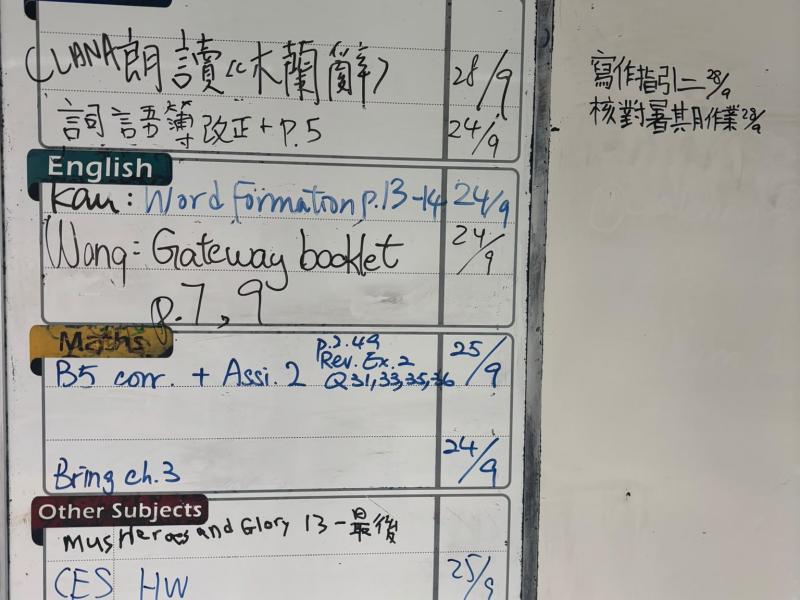 (LIANA朗讀《木蘭辭》 28/9
詞語簿改正+P.5 24/9
English
Kau: Word Formation p.13-14 24/9
Wong: Gateway booklet 24/9
p.7, 9
Maths
p.2.49
Rev. Ex. 2
B5 corr. + Assi. 2 Q31,33,35,36 25/9
Bring ch.3 24/9
Other Subjects
Mus Heroes and Glory 13 - 最後
CES HW 25/9
寫作指引二 28/9
核對暑期作業 28/9